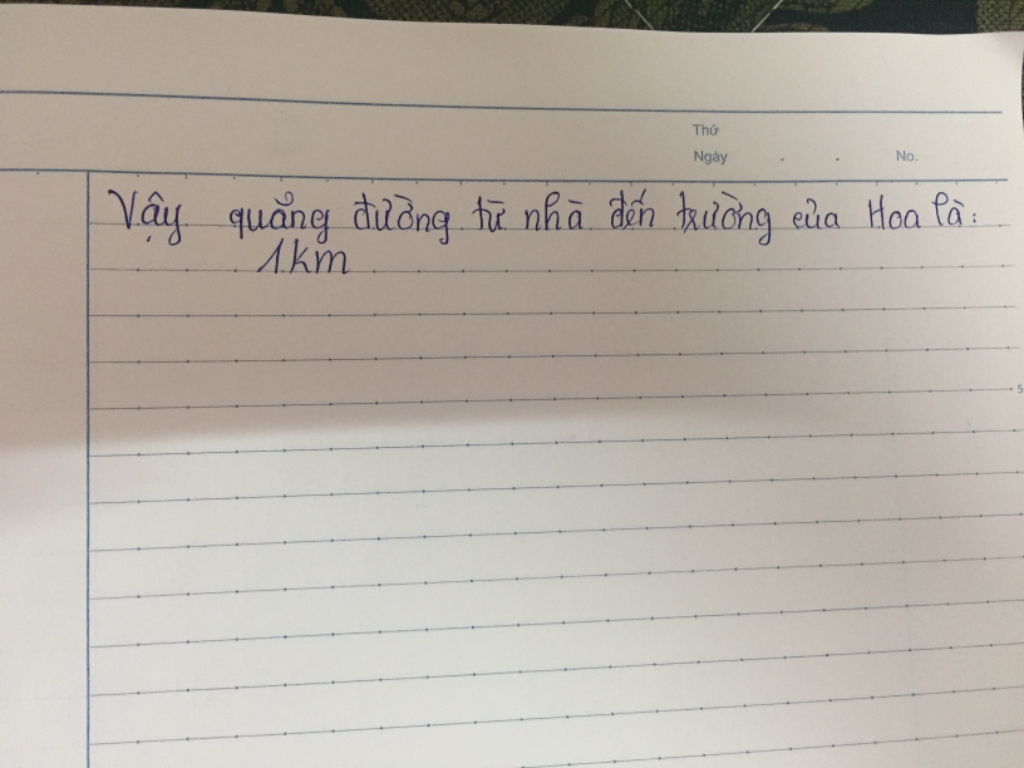 Thứ
Ngày . . No.
Vậy quảng đường từ nhà đến trường của Hoa là:
1km
5